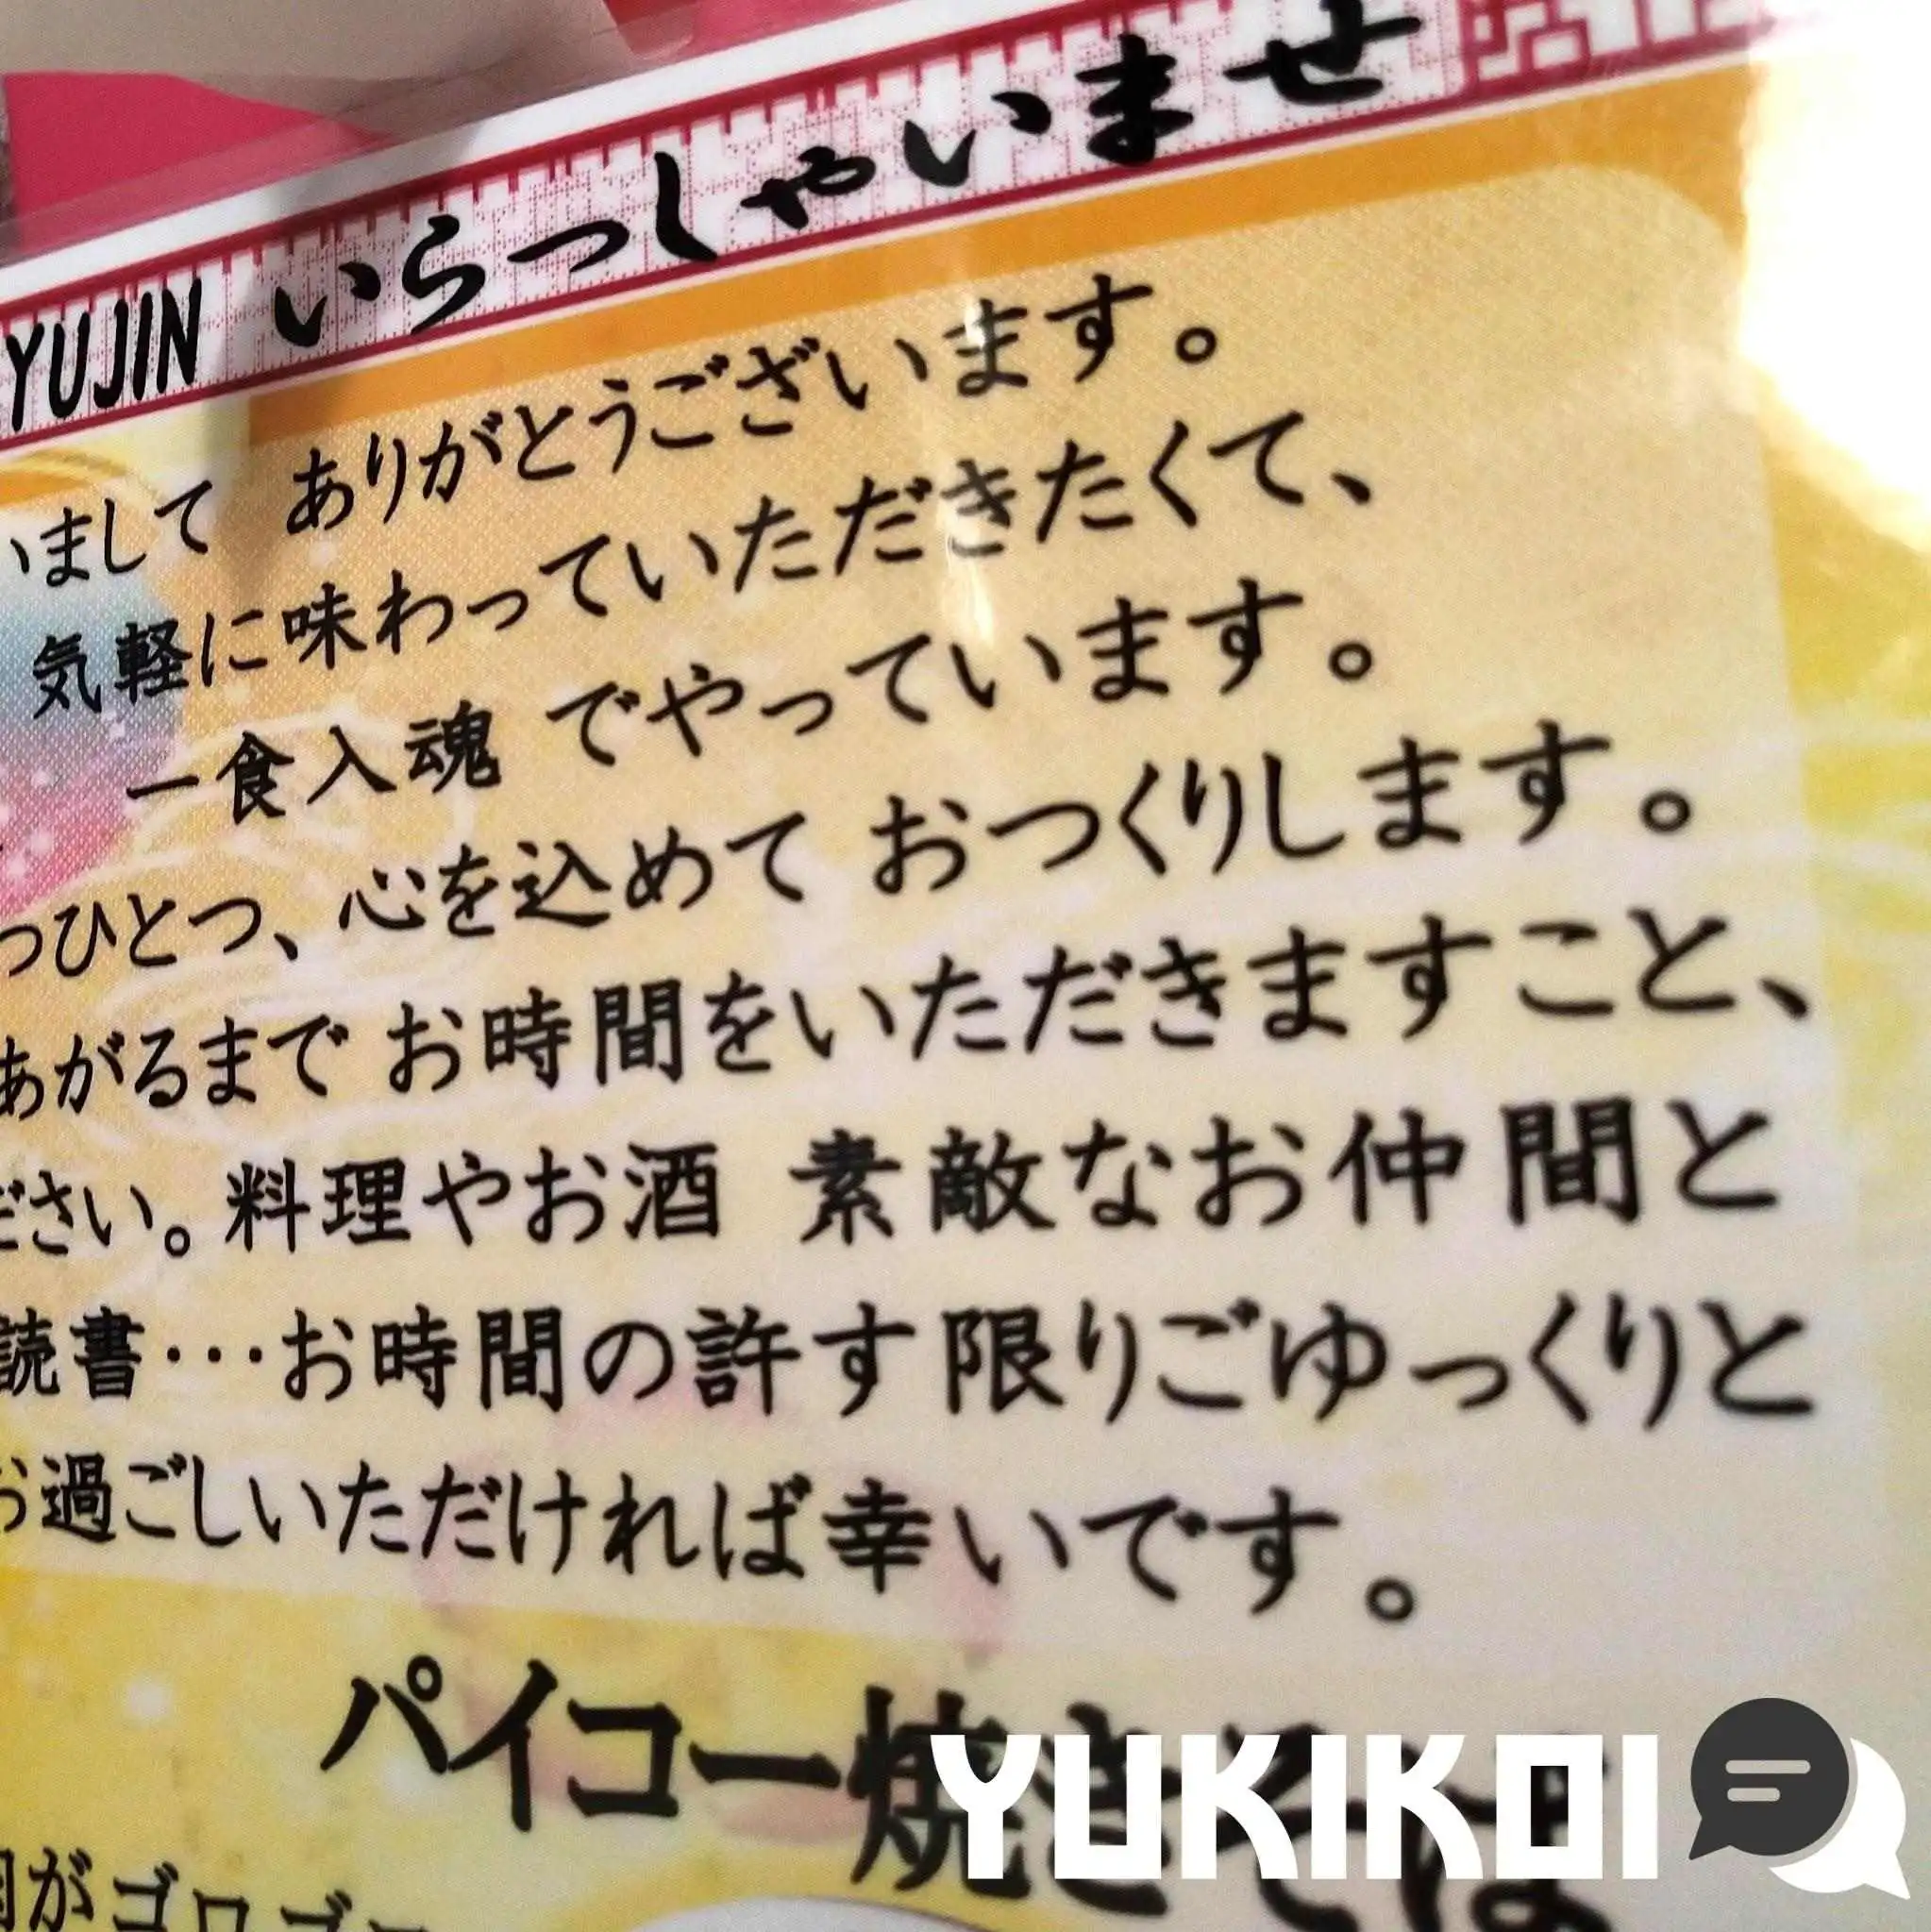 YUJIN いらっしゃいませ
いまして ありがとうございます。
気軽に味わっていただきたくて、
一食入魂 でやっています。
つひとつ、心を込めて おつくりします。
あがるまで お時間をいただきますこと、
ださい。料理やお酒 素敵なお仲間と
読書･･･お時間の許す限りごゆっくりと
お過ごしいただければ幸いです。
パイコー焼きそば
YUKIKOI
がゴロゴロ